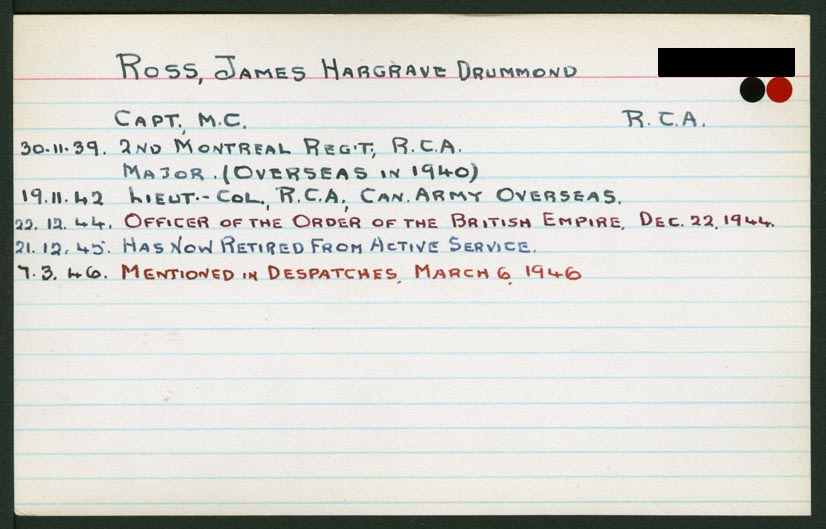 ROSS, JAMES HARGRAVE DRUMMOND
CAPT., M.C. R.C.A.
30.11.39. 2ND MONTREAL REG'T, R.C.A.
MAJOR. (OVERSEAS IN 1940)
19.11.42 LIEUT.-COL., R.C.A., CAN. ARMY OVERSEAS.
22.12.44. OFFICER OF THE ORDER OF THE BRITISH EMPIRE, DEC. 22, 1944.
21.12.45. HAS NOW RETIRED FROM ACTIVE SERVICE.
7.3.46. MENTIONED IN DESPATCHES, MARCH 6, 1946